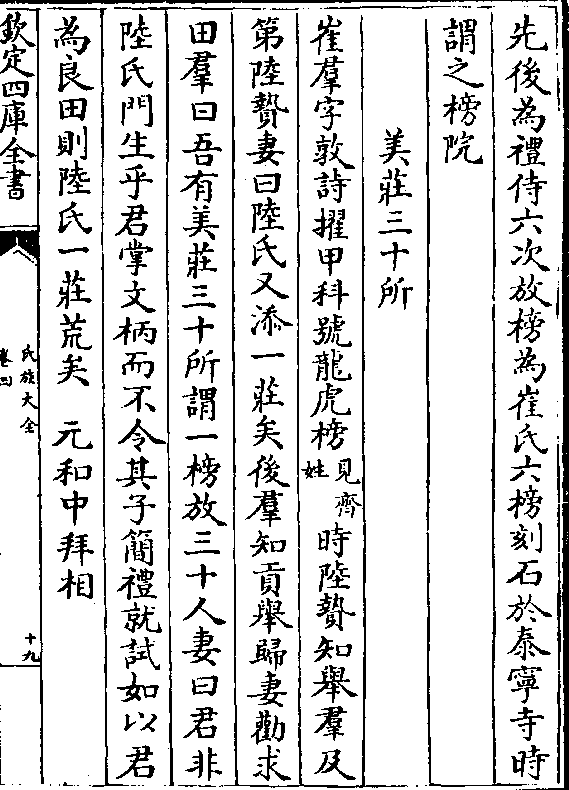 先後為禮侍六次放榜為崔氏六榜刻石於泰寧寺時
謂之榜院
美莊三十所
崔羣字敦詩擢甲科號龍虎榜見齊姓時陸贄知舉羣及
第陸贄妻曰陸氏又添一莊矣後羣知貢舉歸妻勸求
田羣曰吾有美莊三十所謂一榜放三十人妻曰君非
陸氏門生乎君掌文柄而不令其子簡禮就試如以君
為良田則陸氏一莊荒矣 元和中拜相
欽定四庫全書
氏族大全
卷四
十九